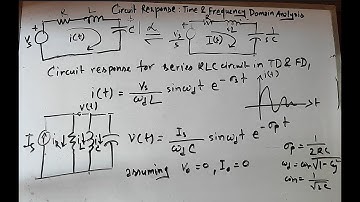 Circuit Response : Time & Frequency Domain Analysis
R L
Vs
i(t)
C
I(s)
Circuit response for series RLC circuit in TD & FD,
i(t) = Vs/ωdL sinωdt e^-σst
i(t)
t
v(t)
Is
v(t) = Is/ωdC sinωdt e^-σpt
assuming Vo = 0, Io = 0
σp = 1/2RC
ωd = ωn√1-ζ²
ωn = 1/√LC